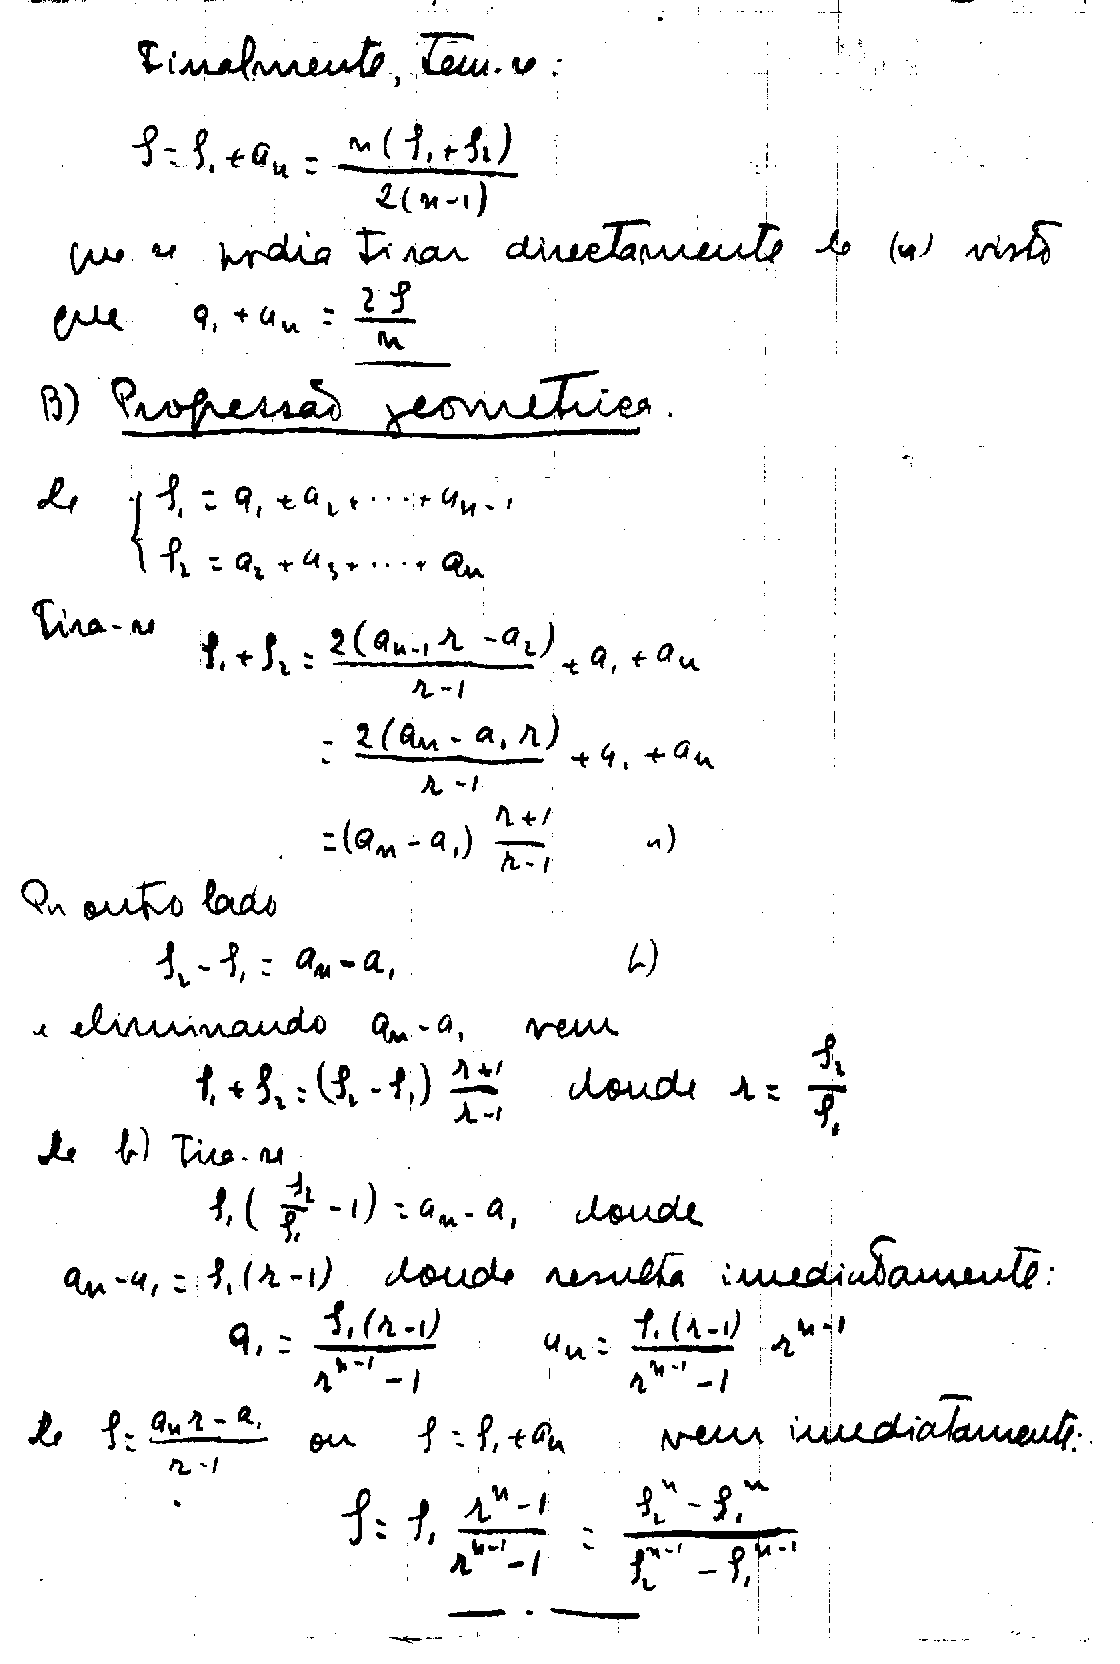 Finalmente, tem-se:
S = S₁ + aₙ = n(S₁+S₂) / 2(n-1)
que se podia tirar directamente de (a) visto
que a₁ + aₙ = 2S / n
B) Progressão geometrica.
de { S₁ = a₁ + a₂ + ... + aₙ₋₁
S₂ = a₂ + a₃ + ... + aₙ
Tira-se S₁ + S₂ = 2(aₙ₋₁ r - a₂) / (r-1) + a₁ + aₙ
= 2(aₙ - a₁ r) / (r-1) + a₁ + aₙ
= (aₙ - a₁) (r+1) / (r-1) a)
Por outro lado
S₂ - S₁ = aₙ - a₁ b)
e eliminando aₙ - a₁ vem
S₁ + S₂ = (S₂ - S₁) (r+1) / (r-1) donde r = S₂ / S₁
de b) Tira-se
S₁ ( S₂ / S₁ - 1) = aₙ - a₁ donde
aₙ - a₁ = S₁(r-1) donde resulta imediatamente:
a₁ = S₁(r-1) / (rⁿ⁻¹ - 1) aₙ = S₁(r-1) / (rⁿ⁻¹ - 1) rⁿ⁻¹
de S = (aₙ r - a₁) / (r-1) ou S = S₁ + aₙ vem imediatamente:
S = S₁ (rⁿ - 1) / (rⁿ⁻¹ - 1) = (S₂ⁿ - S₁ⁿ) / (S₂ⁿ⁻¹ - S₁ⁿ⁻¹)